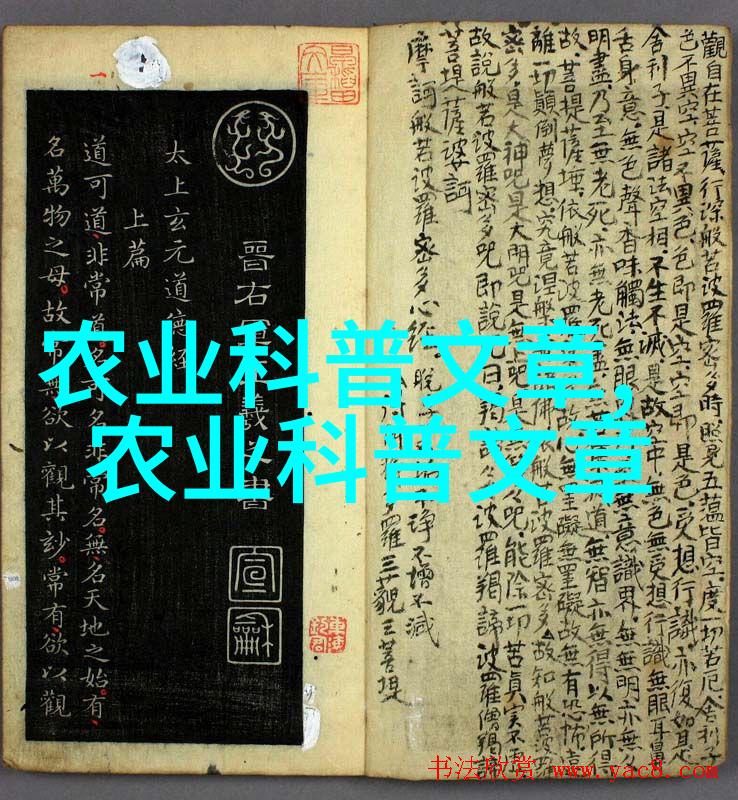 农业科普文章,
农业科普文章
觀自在菩薩行深般若波羅密多時照見五蘊皆空度一切若厄舍利子
色不異空空不異色色即是空空即是色受想行識亦復如是
舍利子是諸法空相不生不滅是故空中無色無受想行識無眼耳鼻
舌身意無色聲香味觸法無眼無意識界無無明亦無
明盡乃至無老死亦無老死盡道無智亦無得以無所得
故菩提薩埵依般若波羅故心無罣礙無罣礙故無有恐怖遠
離一切顛倒夢想究竟涅槃佛依般若波羅密多故知般若波
密多是大神咒是大明咒是無上咒是咒能除一切苦真實不虛
故說般若波羅密多咒即說咒曰揭波羅揭諦波羅僧揭諦
菩提薩婆訶
摩訶般若波羅密多心經
淨不增不減
羅三藐三菩提
晉右軍羲之書
宣龢
太上玄元道德經
上篇
道可道非常道名可名非常名無名天地之始有
名萬物之母故常無欲以觀其妙常有欲以觀
书法欣赏 www.yac8.com